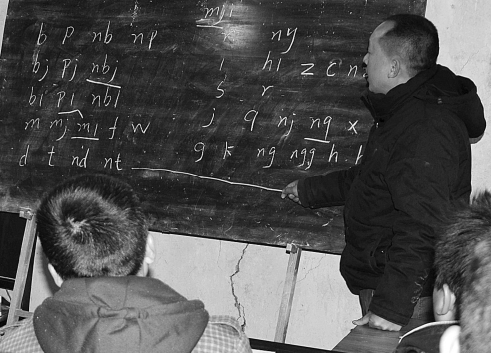 mji
b p nb np ny
bj pj nbj l hl z c
bl pl nbl s r
m mj ml f w j q nj nq x
d t nd nt g k ng ngg h